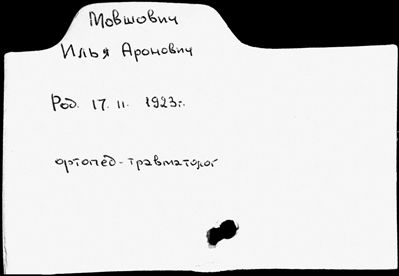 Мовшович
Илья Аронович
Род. 17. II. 1923г.
ортопед-травматолог